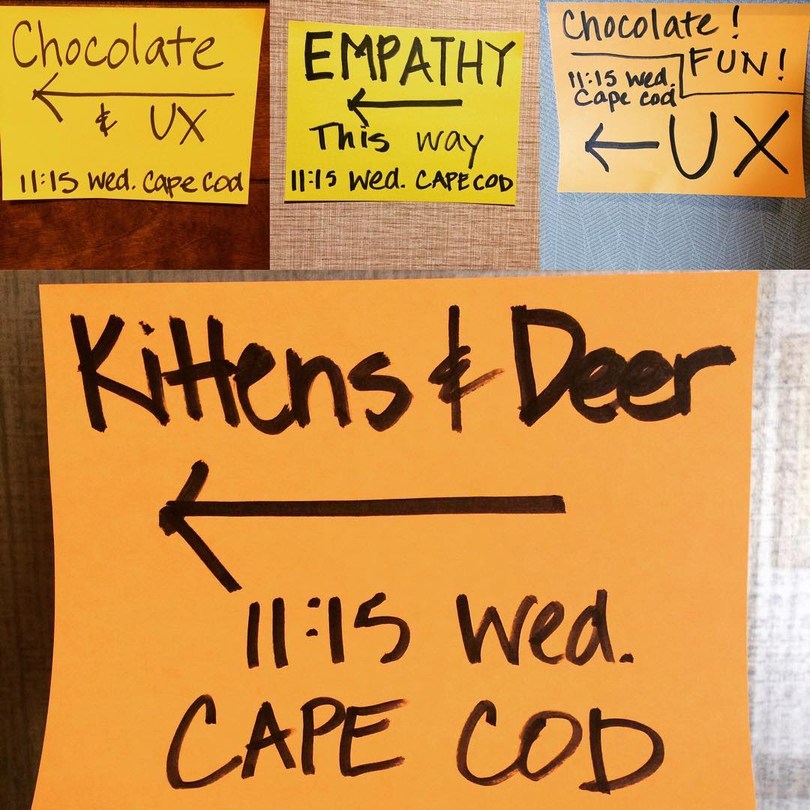 Chocolate
←
& UX
11:15 Wed. Cape Cod
EMPATHY
←
This way
11:15 Wed. CAPE COD
Chocolate!
FUN!
11:15 Wed.
Cape Cod
← UX
Kittens & Deer
←
11:15 Wed.
CAPE COD